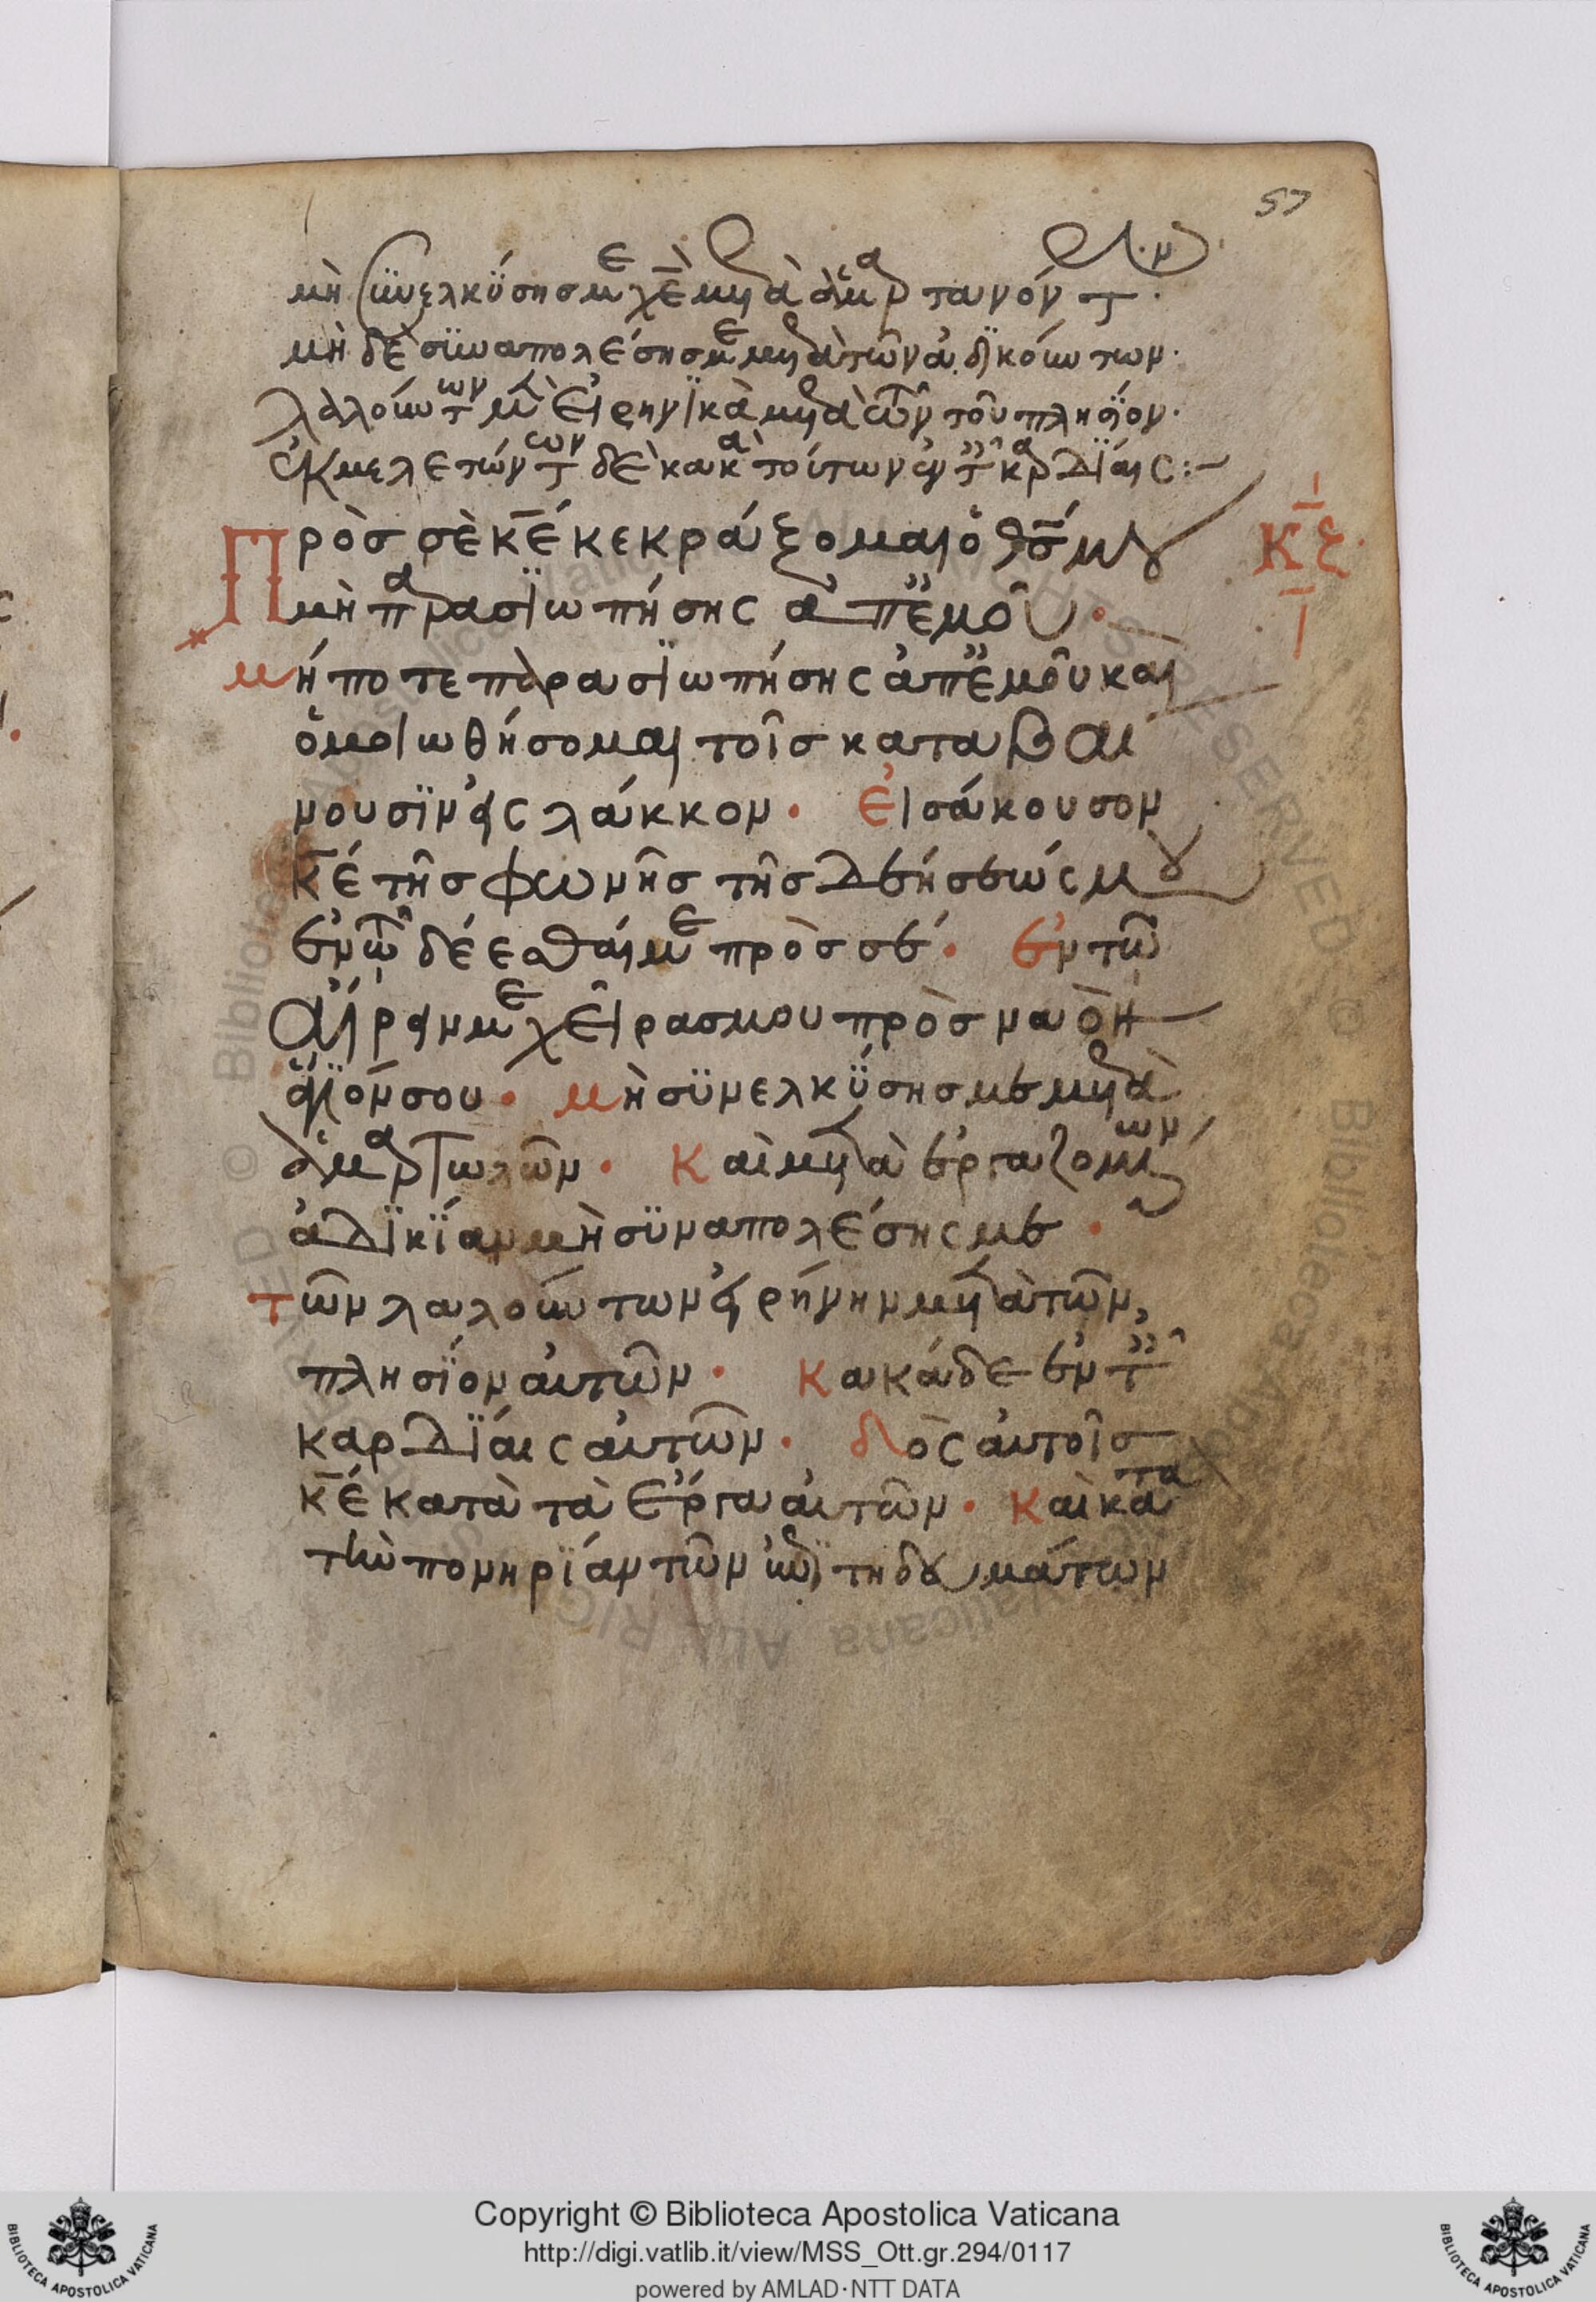 57
μὴ συνελκύσησ με χ̅ε̅ μετὰ ἁμαρτανόντων·
μὴ δὲ συναπολέσησ με μετὰ τῶν ἀδικούντων·
λαλούντων μὲν εἰρηνϊκὰ μετὰ τῶν τοῦ πλησίον·
ἐκμελετώντων δὲ κακὰ τούτων ἐν ταῖς καρδΐαις:~
Πρὸσ σὲ κ̅ε̅ κεκράξομαι ὁ θ̅σ̅ μου
κ̅ζ̅
μὴ παρασϊωπήσης ἀπ' ἐμοῦ·
μήποτε παρασϊωπήσης ἀπ' ἐμοῦ καὶ
ὁμοιωθήσομαι τοῖσ καταβαι
νουσϊν εἰς λάκκον· εἰσάκουσον
κ̅ε̅ τῆσ φωνῆσ τῆσ δεήσεώς μου
ἐν τῶ δέεσθαί με πρὸσ σέ· ἐν τῶ
αἴρειν με χεῖρασ μου πρὸσ ναὸν
ἅγϊόν σου· μὴ συνελκύσησ με μετὰ
ἁμαρτωλῶν· Καὶ μετὰ ἐργαζομένων
ἀδϊκΐαν μὴ συναπολέσης με·
τῶν λαλούντων εἰρήνην μετὰ τῶν
πλησΐον αὐτῶν· Κακὰ δὲ ἐν ταῖς
καρδΐαις αὐτῶν· δὸς αὐτοῖσ
κ̅ε̅ κατὰ τὰ ἔργα αὐτῶν· καὶ κατὰ
τὴν πονηρΐαν τῶν ἐπϊτηδευμάτων
Copyright © Biblioteca Apostolica Vaticana
http://digi.vatlib.it/view/MSS_Ott.gr.294/0117
powered by AMLAD·NTT DATA
BIBLIOTECA APOSTOLICA VATICANA
BIBLIOTECA APOSTOLICA VATICANA